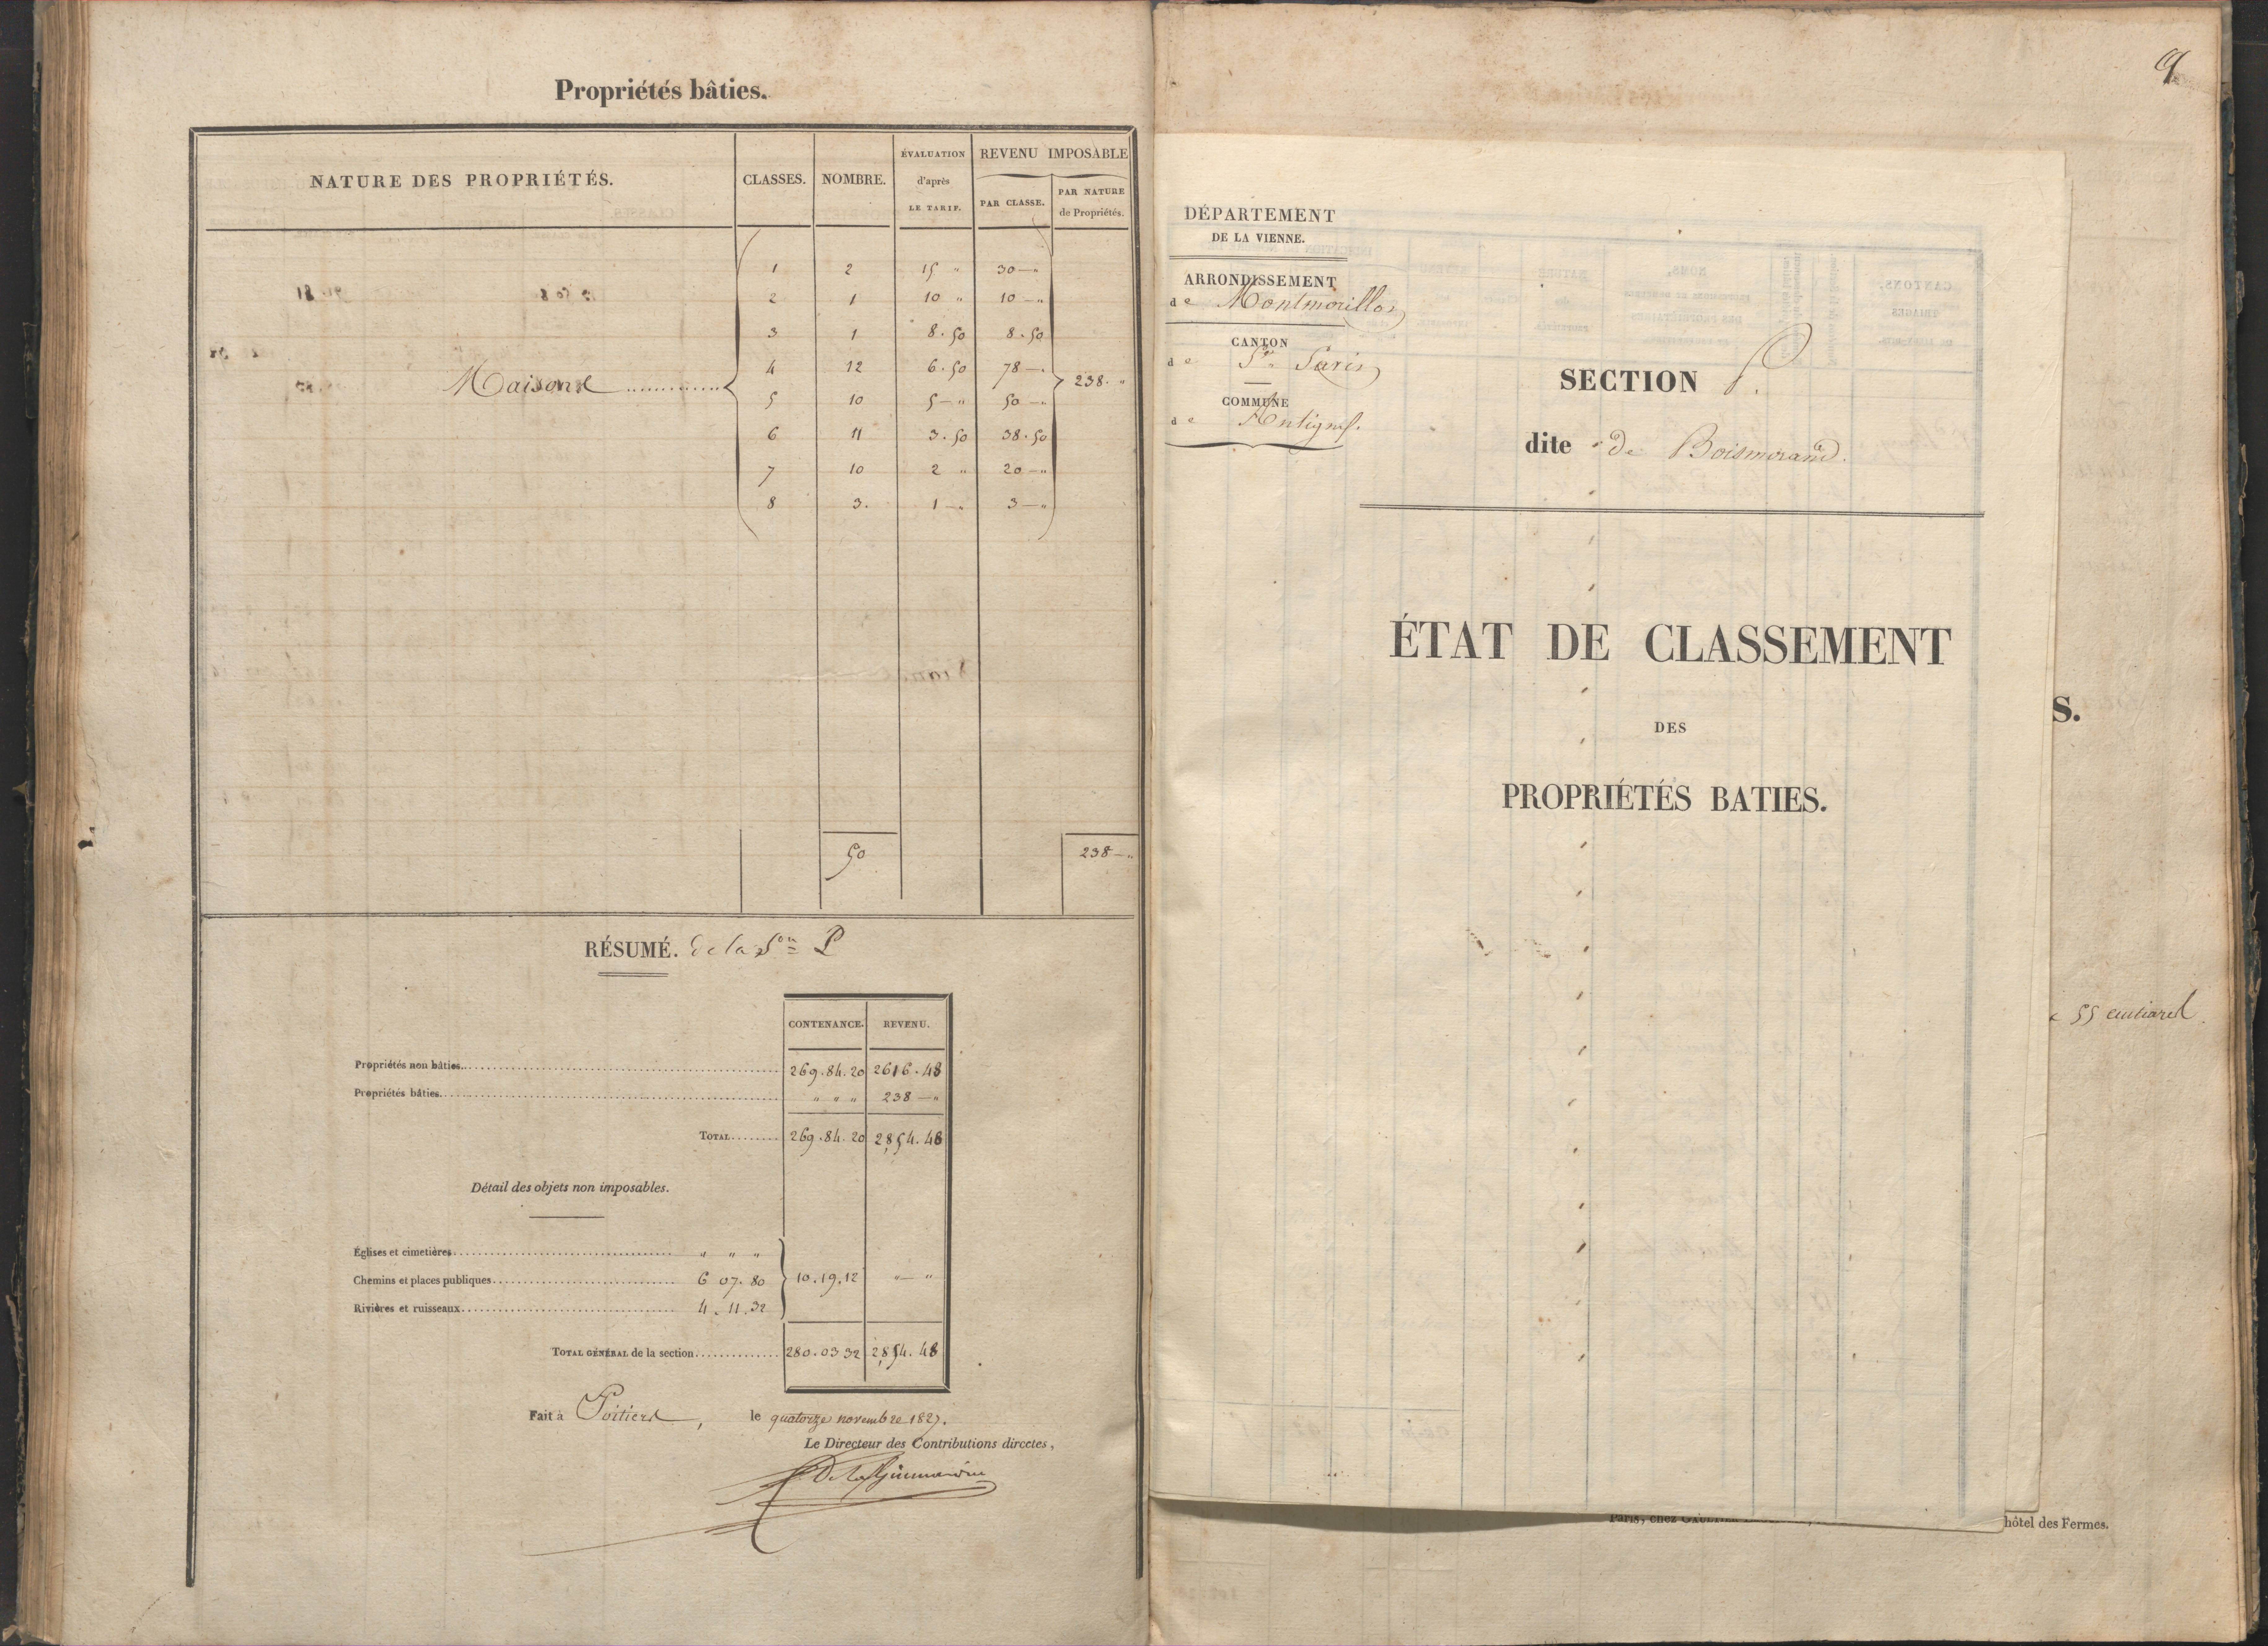 Propriétés bâties.
NATURE DES PROPRIÉTÉS. CLASSES. NOMBRE. ÉVALUATION d'après LE TARIF. REVENU IMPOSABLE
PAR CLASSE. PAR NATURE de Propriétés.
1 2 15 " 30 — "
2 1 10 " 10 — "
3 1 8.50 8.50
4 12 6.50 78 — "
Maisons 238. "
5 10 5 — " 50 — "
6 11 3.50 38.50
7 10 2 " 20 — "
8 3. 1 — " 3 — "
50 238 — "
RÉSUMÉ. de la Son P
CONTENANCE. REVENU.
Propriétés non bâties 269.84.20 2616.48
Propriétés bâties " " " 238 — "
TOTAL 269.84.20 2854.48
Détail des objets non imposables.
Églises et cimetières " " "
Chemins et places publiques 6 07.80 10.19.12 " — "
Rivières et ruisseaux 4.11.32
TOTAL GÉNÉRAL de la section 280.03 32 2854.48
Fait à Poitiers, le quatorze novembre 1827.
Le Directeur des Contributions directes,
9
DÉPARTEMENT
DE LA VIENNE.
ARRONDISSEMENT
de Montmorillon
CANTON
de St. Savin
COMMUNE
de Antigny.
SECTION P.
dite de Boismorand.
ÉTAT DE CLASSEMENT
DES
PROPRIÉTÉS BATIES.
S.
55 centiares
Paris, chez
hôtel des Fermes.